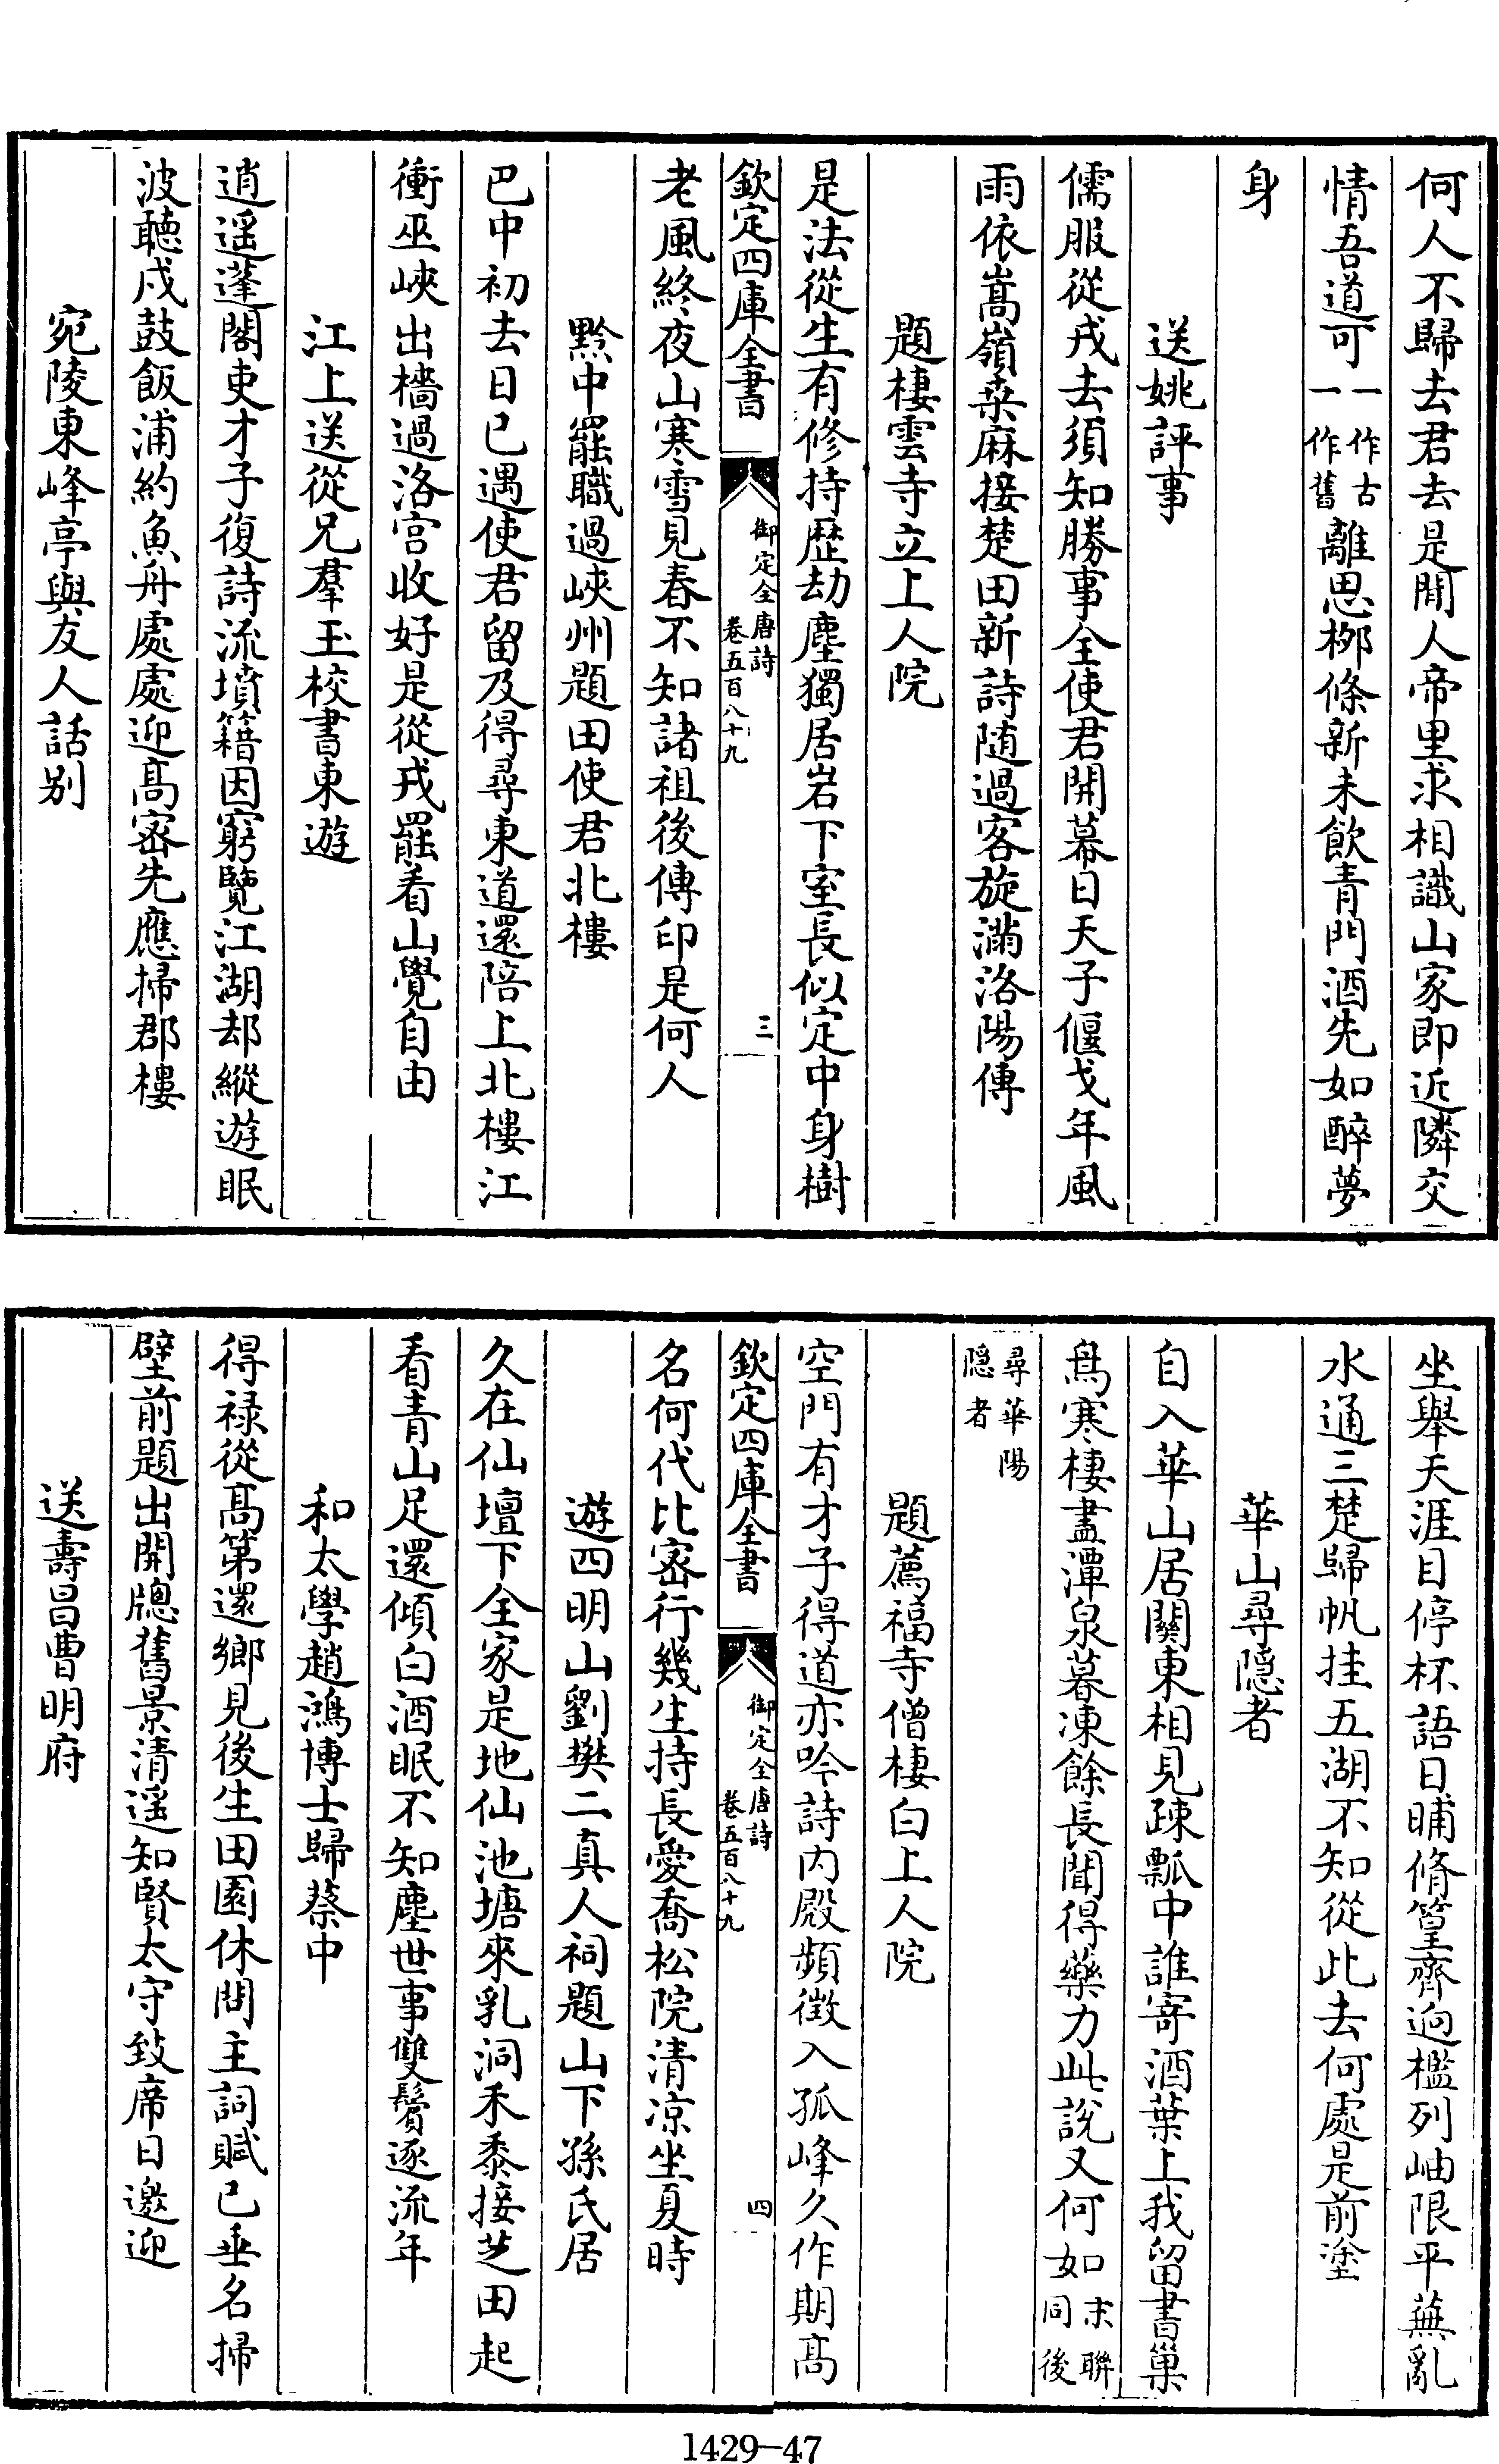 何人不歸去君去是閒人帝里求相識山家即近隣交
情吾道可一作古一作舊離思栁條新未飲青門酒先如醉夢
身
送姚評事
儒服從戎去須知勝事全使君開幕日天子偃戈年風
雨依嵩嶺桒麻接楚田新詩随過客旋滿洛陽傳
題棲雲寺立上人院
是法從生有修持歴劫塵獨居岩下室長似定中身樹
欽定四庫全書
御定全唐詩
卷五百八十九
三
老風終夜山寒雪見春不知諸祖後傳印是何人
黔中罷職過峽州題田使君北樓
巴中初去日已遇使君留及得尋東道還陪上北樓江
衝巫峽出檣過洛宫收好是從戎罷看山覺自由
江上送從兄羣玉校書東遊
逍遥蓬閣吏才子復詩流墳籍因窮覽江湖却縱遊眠
波聽戍鼓飯浦約魚舟處處迎髙宻先應掃郡樓
宛陵東峰亭與友人話别
坐舉天涯目停杯語日晡脩篁齊迥檻列岫限平蕪亂
水通三楚歸帆挂五湖不知從此去何處是前塗
華山尋隠者
自入華山居關東相見疎瓢中誰寄酒葉上我留書巢
鳥寒棲盡潭泉暮凍餘長聞得藥力此說又何如末聯同後
尋華陽隠者
題薦福寺僧棲白上人院
空門有才子得道亦吟詩内殿頻徴入孤峰久作期髙
欽定四庫全書
御定全唐詩
卷五百八十九
四
名何代比宻行幾生持長愛喬松院清凉坐夏時
遊四明山劉樊二真人祠題山下孫氏居
久在仙壇下全家是地仙池塘來乳洞禾黍接芝田起
看青山足還傾白酒眠不知塵世事雙鬢逐流年
和太學趙鴻博士歸蔡中
得禄從髙第還鄉見後生田園休問主詞賦已垂名掃
壁前題出開牕舊景清遥知賢太守致席日邀迎
送壽昌曹明府
1429—47